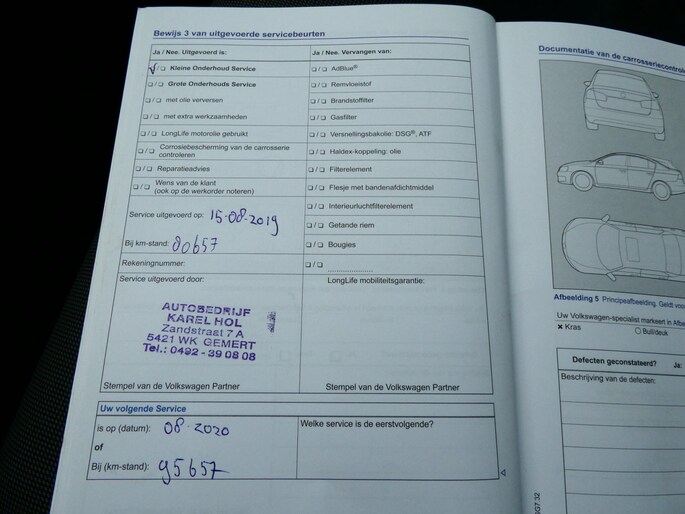 Bewijs 3 van uitgevoerde servicebeurten
Ja / Nee. Uitgevoerd is:
Kleine Onderhoud Service
Grote Onderhouds Service
met olie verversen
met extra werkzaamheden
LongLife motorolie gebruikt
Corrosiebescherming van de carrosserie
controleren
Reparatieadvies
Wens van de klant
(ook op de werkorder noteren)
Service uitgevoerd op: 15-08-2019
Bij km-stand: 80657
Rekeningnummer:
Service uitgevoerd door:
AUTOBEDRIJF
KAREL HOL
Zandstraat 7 A
5421 WK GEMERT
Tel.: 0492 - 39 08 08
Stempel van de Volkswagen Partner
Ja / Nee. Vervangen van:
AdBlue®
Remvloeistof
Brandstoffilter
Gasfilter
Versnellingsbakolie: DSG®, ATF
Haldex-koppeling: olie
Filterelement
Flesje met bandenafdichtmiddel
Interieurluchtfilterelement
Getande riem
Bougies
LongLife mobiliteitsgarantie:
Stempel van de Volkswagen Partner
Uw volgende Service
is op (datum): 08-2020
of
Bij (km-stand): 95657
Welke service is de eerstvolgende?
Documentatie van de carrosseriecontrole
Afbeelding 5 Principeafbeelding. Geldt voor
Uw Volkswagen-specialist markeert in Afbe
Kras
Buil/deuk
Defecten geconstateerd? Ja:
Beschrijving van de defecten: